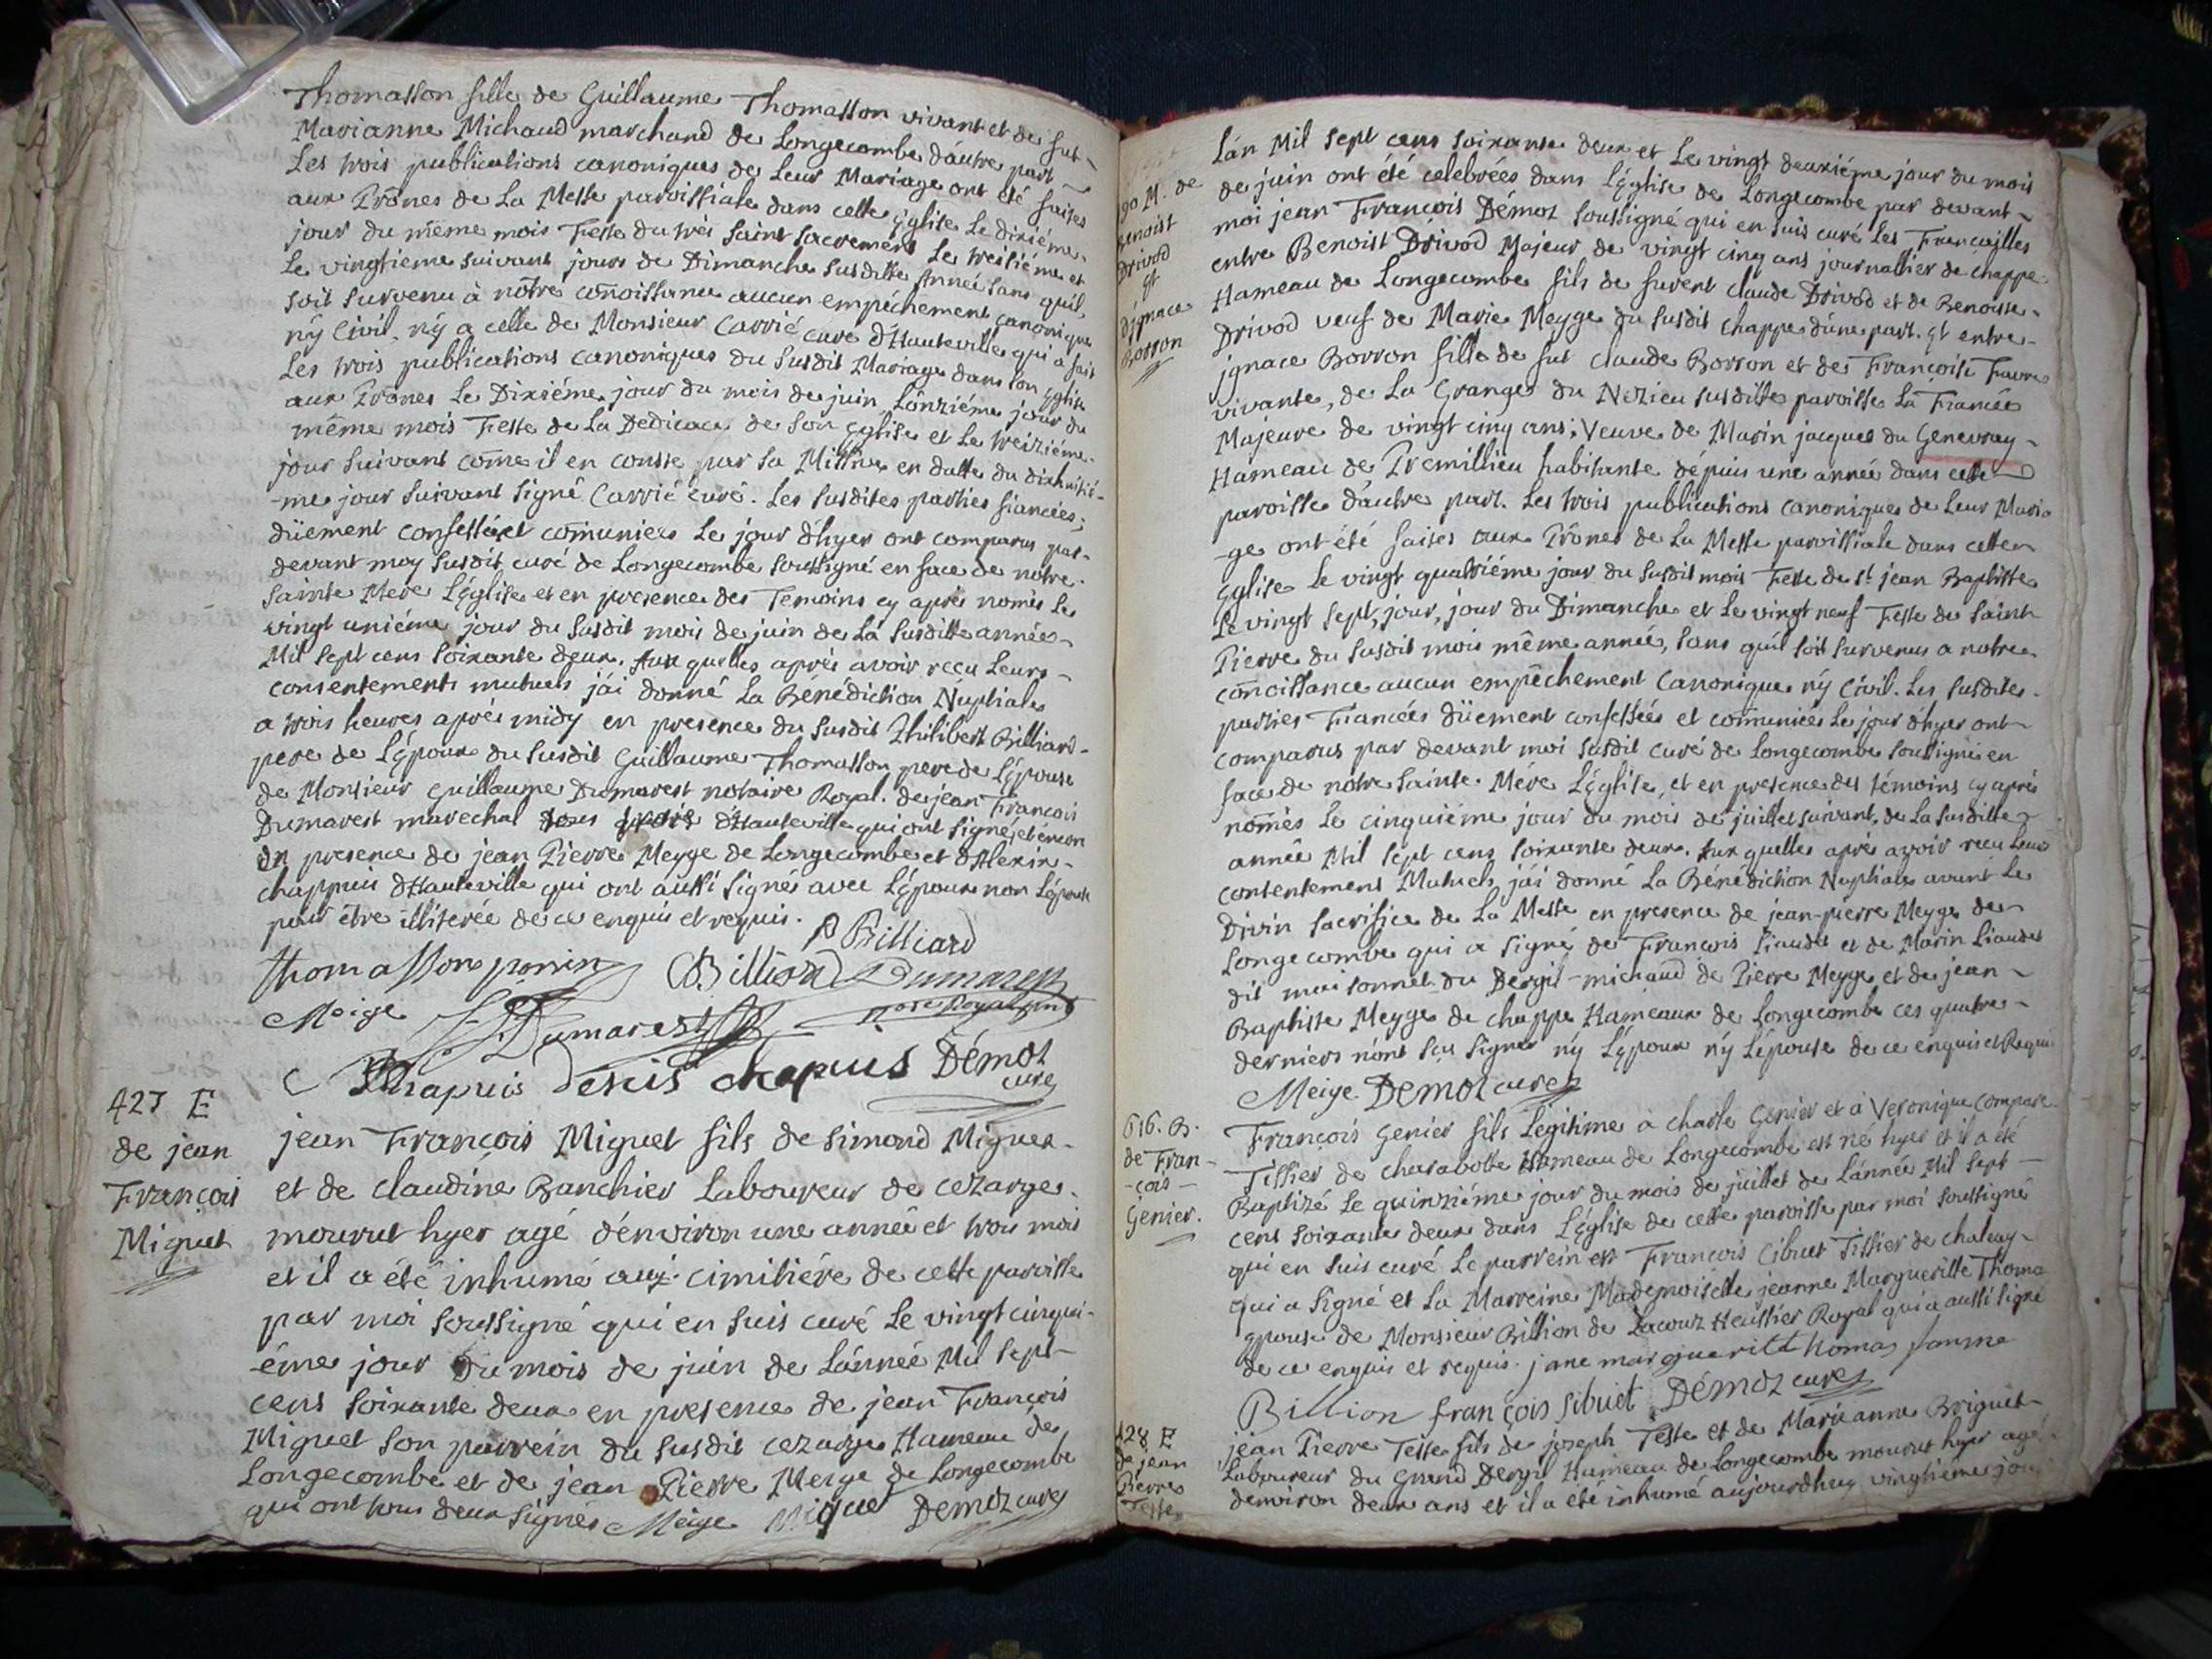 Thomasson fille de Guillaume Thomasson vivant et de fut
Marianne Michaud marchand de Longecombe d'autre part
Les trois publications canoniques de Leur Mariage ont été faites
aux Prônes de La Messe paroissiale dans cette Eglise Le dixiéme
jour du même mois Feste du trés Saint Sacrement Le treiziéme et
Le vingtieme suivant jours de Dimanche Susditte Année Sans qu'il
soit survenu à nôtre conoissance aucun empêchement canonique
n'y Civil, n'y a celle de Monsieur Carrié curé d'Hauteville qui a fait
Les trois publications canoniques du Susdit Mariage dans son Eglise
aux Prônes Le Dixiéme jour du mois de juin L'onziéme jour du
même mois Feste de La Dedicace de son Eglise et Le treiziéme
jour suivant côme il en conste par sa Missive en datte du dixhuitié-
-me jour suivant signé Carrié curé. Les susdites parties fiancées,
düement confessées et comuniées Le jour d'hyer ont comparus par-
devant moy susdit curé de Longecombe soussigné en face de notre
Sainte Mere L'Eglise et en presence des Temoins cy aprés només Le
vingt uniéme jour du susdit mois de juin de La susditte année
Mil sept cens soixante deux. Aux quelles aprés avoir reçu Leurs
consentements mutuels j'ai donné La Bénédiction Nuptiale
a trois heures aprés midy en presence du susdit Philibert Billiard
pere de L'époux du susdit Guillaume Thomasson pere de L'épouse
de Monsieur Guillaume Dumarest notaire Royal. de jean Francois
Dumarest marechal d'Hauteville qui ont signé, et encor
en presence de jean Pierre Meyge de Longecombe et d'Alexis
chappuis d'Hauteville qui ont aussi signés avec L'époux non L'épouse
pour être illiterée de ce enquis et requis. P Billiard
Thomasson Billiard Dumarest
Meige Dumarest
Chapuis chapuis Démoz
curé
427 E
de jean
François
Miguet
jean François Miguet fils de Simond Miguet
et de claudine Banchier Laboureur de cezarge
mourut hyer agé d'environ une année et trois mois
et il a été inhumé au cimitiére de cette paroisse
par moi soussigné qui en suis curé Le vingt cinqui-
-éme jour du mois de juin de L'année Mil sept
cens soixante deux en presence de jean François
Miguet son parrein du susdit cezarge Hameau de
Longecombe et de jean Pierre Meige de Longecombe
qui ont tous deux signés Meige Miguet Demoz curé
M. de
Benoist
Drivod
Et
D'ignace
Borron
L'an Mil sept cens soixante deux et Le vingt deuxiéme jour du mois
de juin ont été celebrées dans L'Eglise de Longecombe par devant
moi jean François Démoz soussigné qui en suis curé Les Fiançailles
entre Benoist Drivod Majeur de vingt cinq ans journallier de chappe
Hameau de Longecombe fils de furent claude Drivod et de Benoite
Drivod veuf de Marie Meyge du susdit chappe d'une part. Et entre
ignace Borron fille de fut claude Borron et de Françoise Favre
vivante, de La Grange du Nizieu susditte paroisse La Fiancée
Majeure de vingt cinq ans; Veuve de Marin jacques du Genevray
Hameau de Premillieu habitante dépuis une année dans cette
paroisse d'autre part. Les trois publications canoniques de Leur Maria
-ge ont été faites aux Prônes de La Messe paroissiale dans cette
Eglise Le vingt quatriéme jour du susdit mois Feste de St jean Baptiste
Le vingt sept, jour, jour du Dimanche et Le vingt neuf Feste de Saint
Pierre du susdit mois même année, sans qu'il soit survenus a notre
conoissance aucun empêchement Canonique n'y Civil. Les susdites
parties Fiancées düement confessées et comuniées Le jour d'hyer ont
comparus par devant moi susdit curé de Longecombe soussigné en
face de notre Sainte Mére L'Eglise, et en presence des témoins cy aprés
només Le cinquiéme jour du mois de juillet suivant, de La susditte
année Mil sept cens soixante deux. Aux quelles aprés avoir reçu Leur
consentement Mutuels j'ai donné La Bénédiction Nuptiale avant Le
Divin Sacrifice de La Messe en presence de jean-pierre Meyge de
Longecombe qui a signé de François Liaudet et de Marin Liaudet
dit maisonnet du Dergil-michaud de Pierre Meyge et de jean
Baptiste Meyge de chappe Hameaux de Longecombe ces quatre
derniers n'ont sçu signer n'y L'époux n'y L'épouse de ce enquis et Requis
Meige Demoz curé
616. B.
de Fran-
-çois
Genier.
François Genier fils Légitime à charle Genier et à Veronique Compare
Tissier de charabotte Hameau de Longecombe est né hyer et il a été
Baptizé Le quinziéme jour du mois de juillet de L'année Mil sept
cens soixante deux dans L'Eglise de cette paroisse par moi soussigné
qui en suis curé Le parrein est François Cibuet Tissier de chaley
qui a signé et La Marreine Mademoiselle jeanne Marguerite Thoma
epouse de Monsieur Billion de Lacour Heussier Royal qui a aussi signé
de ce enquis et requis. jane marguerite thomas famme
Billion françois sibuet Démoz curé
428 E
de jean
Pierre
Teste
jean Pierre Teste fils de joseph Teste et de Marie anne Briguet
Laboureur du Grand Dergil Hameau de Longecombe mourut hyer agé
d'environ deux ans et il a été inhumé aujourdhuy vingtiéme jour